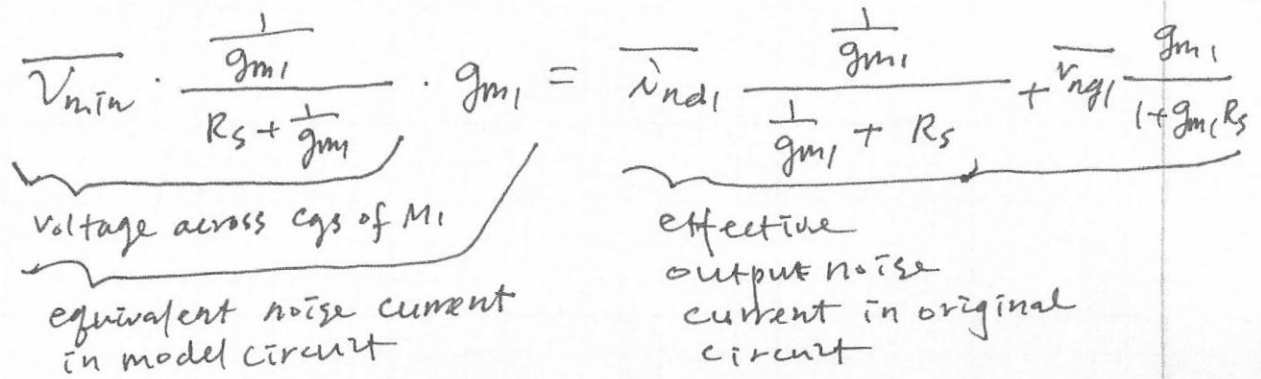 $\overline{V_{min}} \cdot \frac{\frac{1}{g_{m1}}}{R_S + \frac{1}{g_{m1}}} \cdot g_{m1} = \overline{i_{nd1}} \frac{\frac{1}{g_{m1}}}{\frac{1}{g_{m1}} + R_S} + \overline{v_{ng1}} \frac{g_{m1}}{1 + g_{m1} R_S}$
voltage across cgs of M1
equivalent noise current
in model circuit
effective
output noise
current in original
circuit